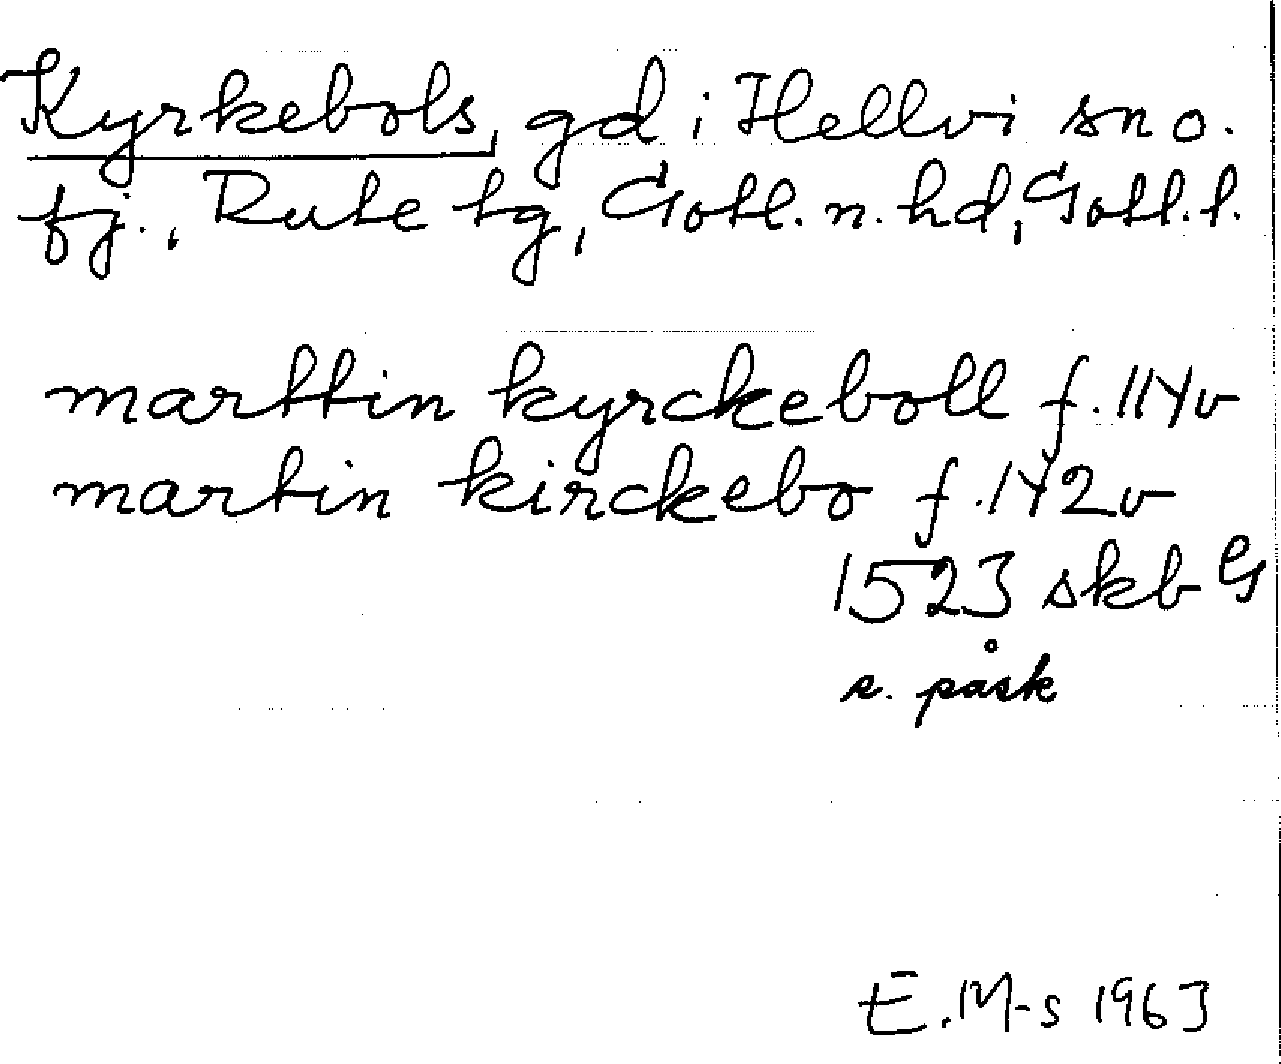 Kyrkebols, gd i Hellvi sn o.
fj., Rute tg, Gotl. n. hd, Gotl. l.
marttin kyrckeboll f. 114v
martin kirckebo f. 142v
1523 skb G
s. påsk
E. M-s 1963